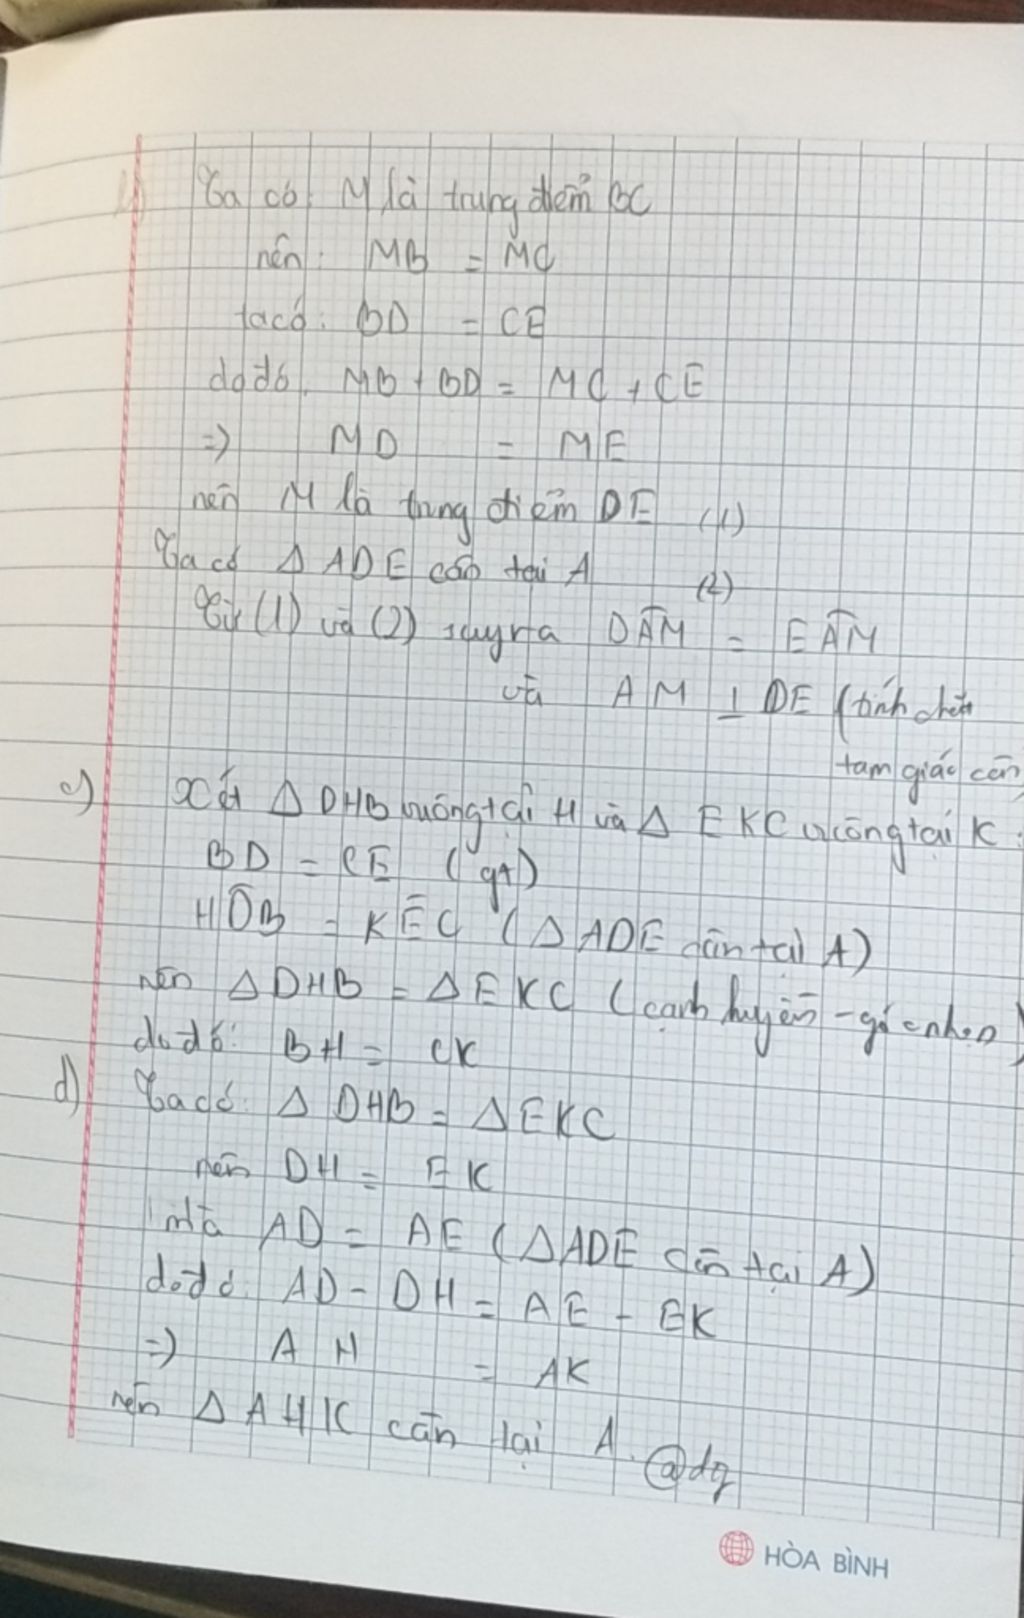 b) Ta có M là trung điểm BC
nên: MB = MC
ta có: BD = CE
do đó. MB + BD = MC + CE
=> MD = ME
nên M là trung điểm DE (1)
Ta có Δ ADE cân tại A (2)
Từ (1) và (2) suy ra DAM = EAM
và AM ⊥ DE (tính chất
tam giác cân)
c) Xét Δ DHB vuông tại H và Δ EKC vuông tại K:
BD = CE (gt)
HDB = KEC (Δ ADE cân tại A)
nên Δ DHB = Δ EKC (cạnh huyền - góc nhọn)
do đó: BH = CK
d) Ta có: Δ DHB = Δ EKC
nên DH = EK
mà AD = AE (Δ ADE cân tại A)
do đó: AD - DH = AE - EK
=> AH = AK
nên Δ AHK cân tại A. @dg
HÒA BÌNH